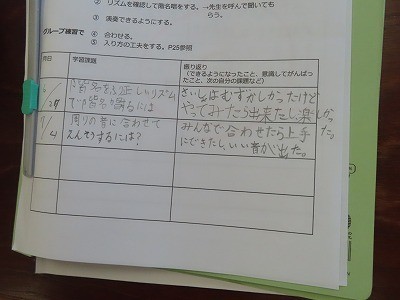 ② リズムを確認して階名唱をする。→先生を呼んで聞いても
らう。
③ 演奏できるようにする。
グループ練習で ④ 合わせる。
⑤ 入り方の工夫をする。P25参照
月日 学習課題 振り返り
(できるようになったこと、意識してがんばっ
たこと、次の自分の課題など)
階名を正しいリズム
さいしょはむずかしかったけど
やってみたら出来たし、楽しかった。
7/4 周りの音に合わせて
えんそうするには?
みんなで合わせたら上手
にできたし、いい音が出た。